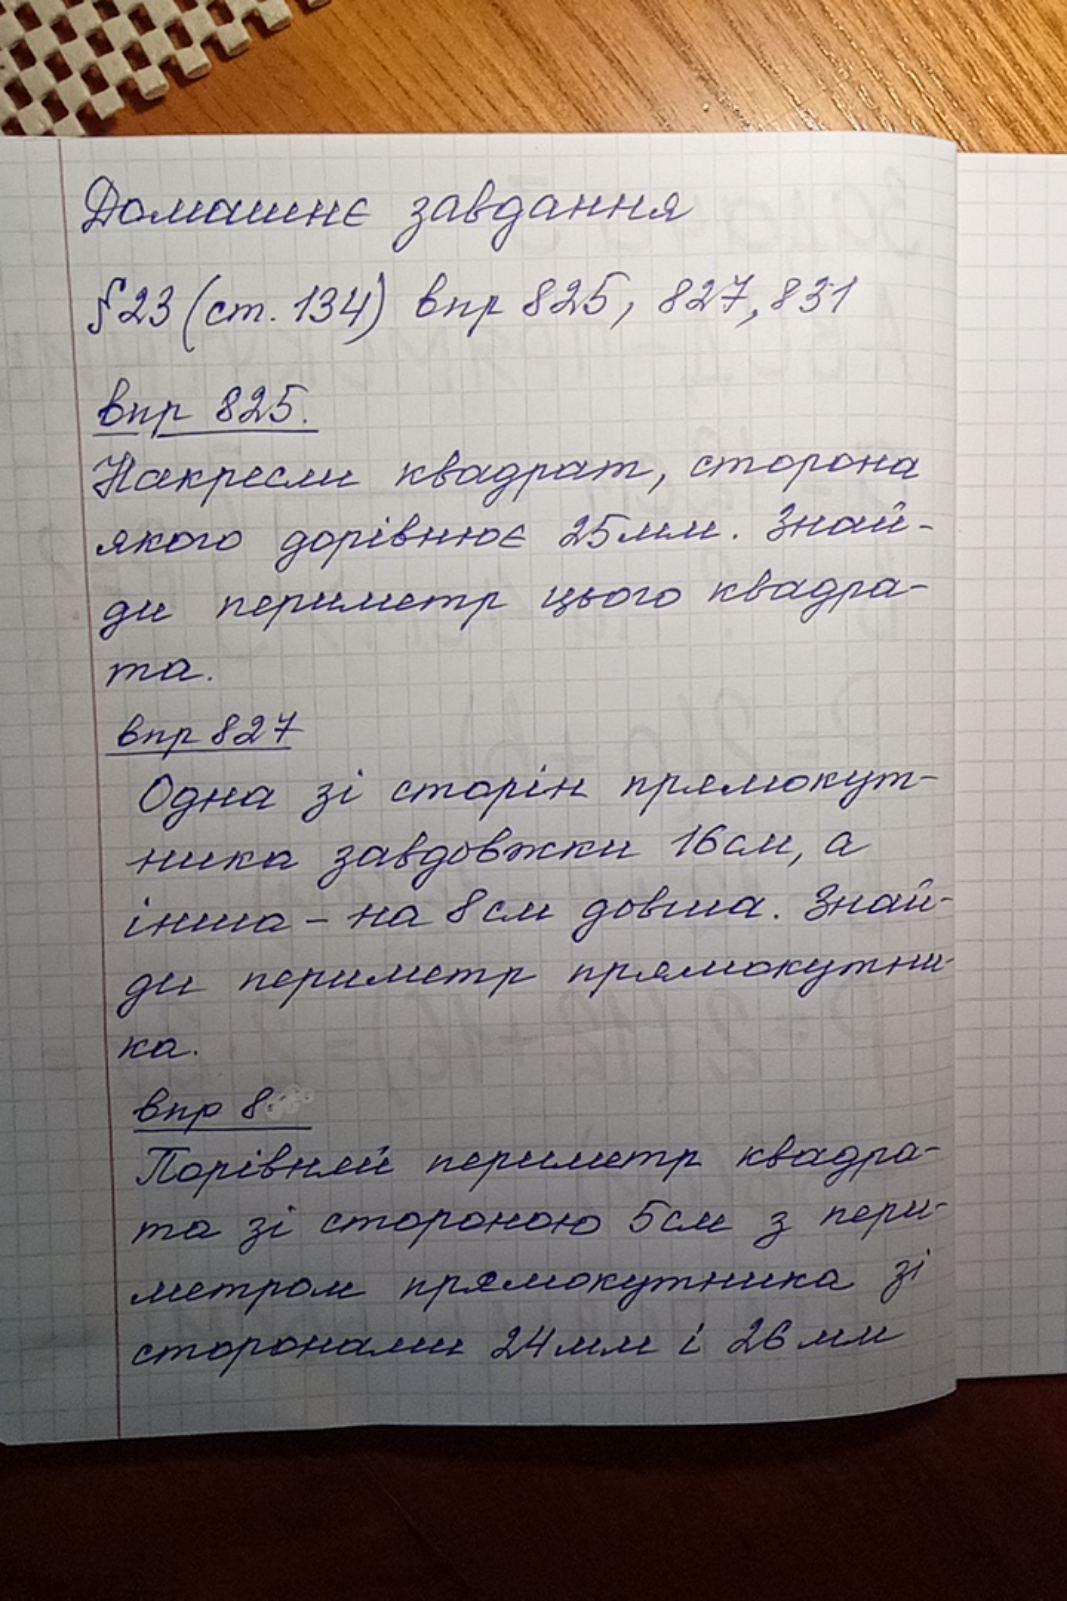 Домашнє завдання
§23 (ст. 134) впр 825, 827, 831
впр 825.
Накресли квадрат, сторона
якого дорівнює 25мм. Знай-
ди периметр цього квадра-
та.
впр 827
Одна зі сторін прямокут-
ника завдовжки 16см, а
інша - на 8см довша. Знай-
ди периметр прямокутни-
ка.
впр 8
Порівняй периметр квадра-
та зі стороною 5см з пери-
метром прямокутника зі
сторонами 24мм і 26мм